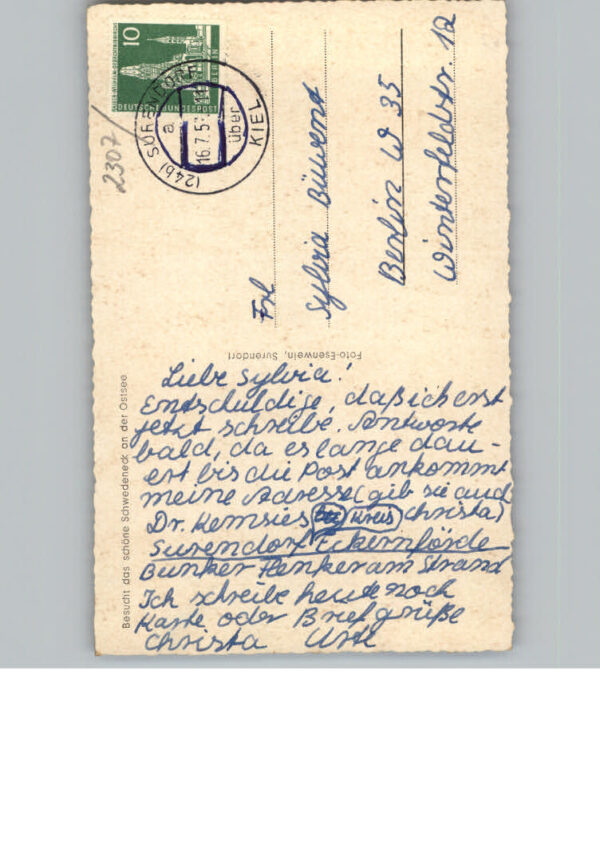 Liebe Sylvia!
Entschuldige, daß ich erst
jetzt schreibe. Antworte
bald, da es lange dau-
ert bis die Post ankommt
meine Adresse (gib sie auch
Dr. Kemsies Kreis Christa)
Surendorf Eckernförde
Bunker Henker am Strand
Ich schreibe heute noch
Karte oder Brief grüße
Christa
Frl
Sylvia
Berlin W 35
Winterfeldstr. 12
Besucht das schöne Schwedeneck an der Ostsee
Foto-Esenwein, Surendorf
10
DEUTSCHE BUNDESPOST
BERLIN
(24b) SURENDORF
über
KIEL
a
16.7.5
2307